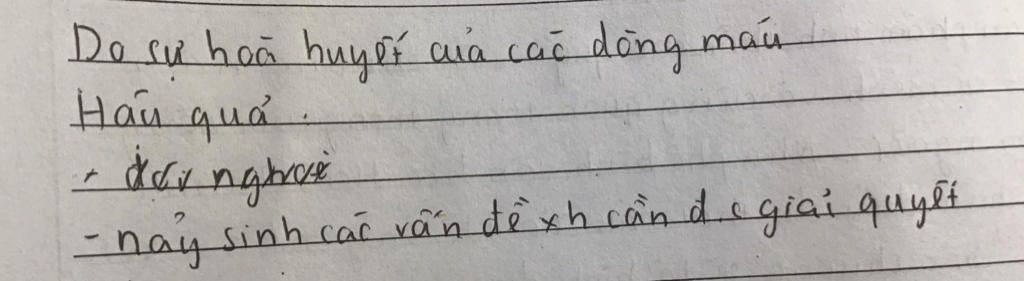 Do sự hoà huyết của các dòng máu
Hậu quả.
+ nghoè
- nảy sinh các vấn đề xh cần đ c giải quyết